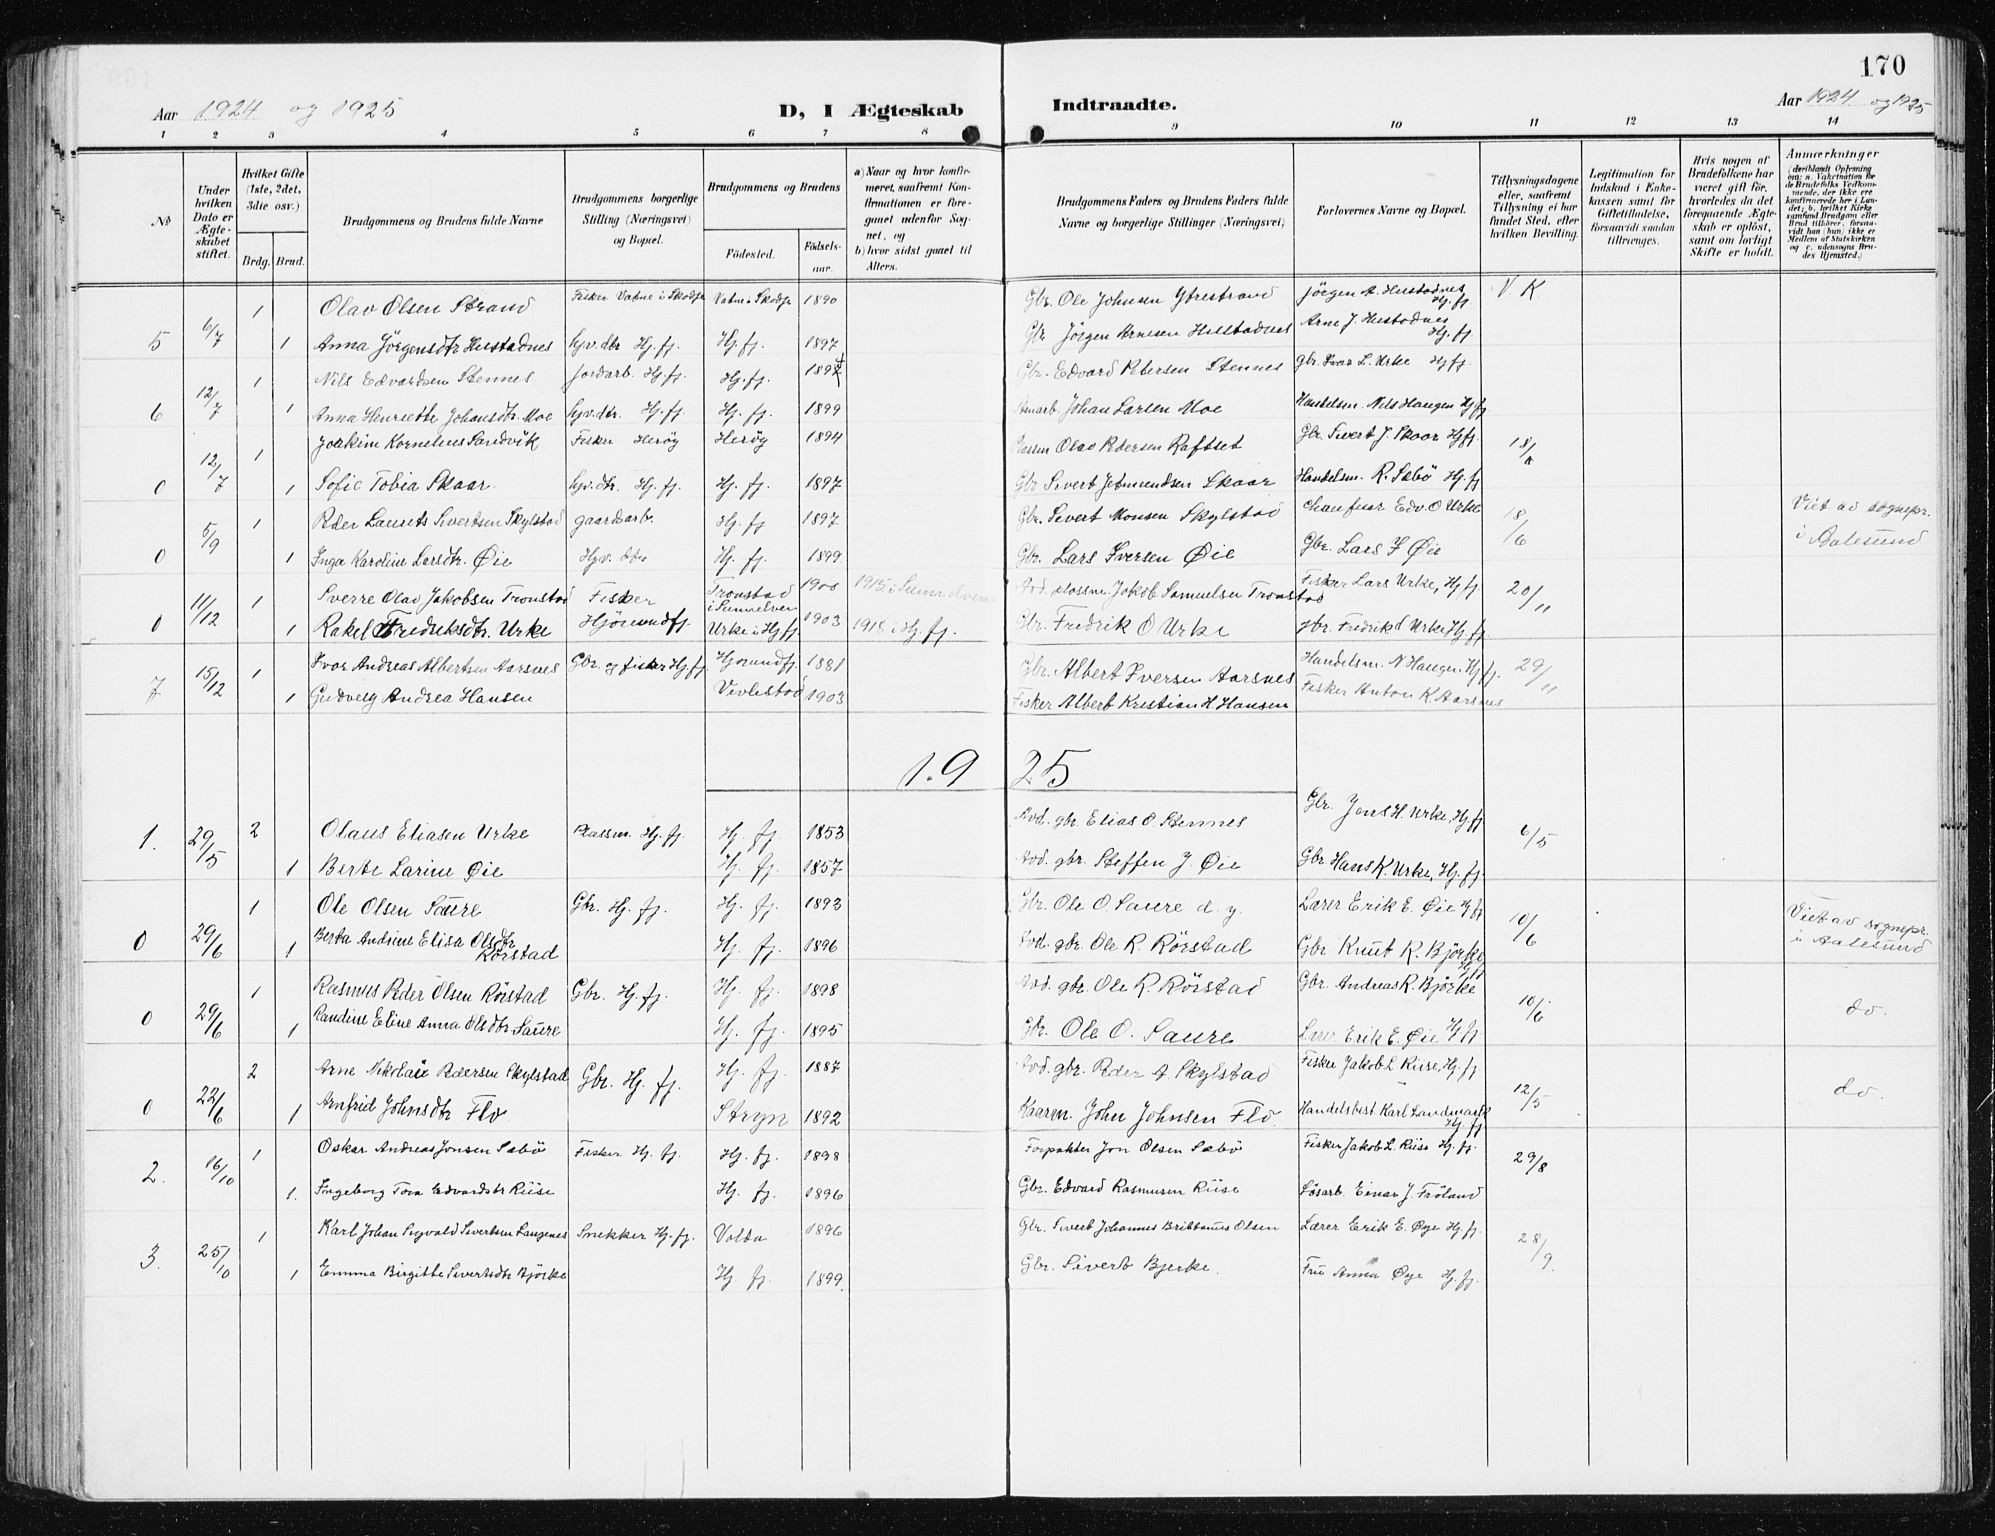 170
Aar 1924 og 1925 D, I Ægteskab Indtraadte. Aar 1924 og 1925
1 2 3 4 5 6 7 8 9 10 11 12 13 14
No
Under hvilken Dato er Ægte-skabet stiftet.
Hvilket Gifte (1ste, 2det, 3die osv.)
Brdg. Brud.
Brudgommens og Brudens fulde Navne
Brudgommens borgerlige Stilling (Næringsvei) og Bopæl.
Brudgommens og Brudens
Födested. Födsels-aar.
a) Naar og hvor konfir-meret, saafremt Kon-firmationen er fore-gaaet udenfor Sog-net, og
b) hvor sidst gaaet til Alters.
Brudgommens Faders og Brudens Faders fulde Navne og borgerlige Stillinger (Næringsvei)
Forlovernes Navne og Bopæl.
Tillysningsdagene eller, saafremt Tillysning ei har fundet Sted, efter hvilken Bevilling.
Legitimation for Indskud i Enke-kassen samt for Giftetilladelse, forsaavidt saadan tiltrænges.
Hvis nogen af Brudefolkene har været gift før, hvorledes da det foregaaende Ægte-skab er oplöst, samt om lovligt Skifte er holdt.
Anmærkninger (deriblandt Oplysning om: a. Vakcination for de Brudefolks Vedkom-mende, der ikke ere konfirmerede her i Lan-det; b. hvilket Kirke-samfund Brudgom eller Brud tilhörer, forsaa-vidt han (hun) ikke er Medlem af Statskirken og c. udensogns Bru-des Hjemsted.)
1 Olav Olsen Strand Fisker Vatne i Skodje Vatne i Skodje 1890 Gbr. Ole Johnsen Ytrestrand Jörgen A. Hustadnes Hj.fj. V K
5 6/7 1 Anna Jörgensdtr Hustadnes hjv. dtr Hj. fj. Hj. fj. 1897 Gbr Jörgen Arnesen Hustadnes Arne J. Hustadnes Hj. fj.
1 Nils Edvardsen Stennes Jordarb. Hj. fj. Hj. fj. 1897 Gbr. Edvard Petersen Stennes Gbr. Ivar L. Urke Hj fj.
6 12/7 1 Anna Henriette Johansdtr. Moe hjv. dtr. Hj. fj. Hj. fj. 1899 Johan Larsen Moe Handelsm. Nils Haugen Hj. fj
1 Joakim Kornelius Sandvik Fisker Herøy Herøy 1894 Olav Pedersen Raftset Gbr. Sivert J. Skaar Hj fj. 18/
0 12/7 1 Sofie Tobia Skaar hjv. dtr. Hj. fj. Hj. fj. 1897 Gbr Sivert Jetmundsen Skaar Handelsm. R. Sæbö Hj. fj
1 Peder Laurits Sivertsen Skylstad gaardsarb. Hj. fj 1897 Gbr. Sivert Monsen Skylstad Chauffeur Edv. O Urke 18/6 Viet av sognepr.
0 5/9 1 Inga Karoline Larsdtr. Øie Hjv. dtr Hj. fj. 1899 Gbr. Lars Iversen Øie Gbr. Lars I Øie i Aalesund
1 Sverre Olav Jakobsen Tronstad Fisker Tronstad i Sunnelven 1900 1915 i Sunnelven Avd. slossm. Jakob Samuelsen Tronstad Fisker Lars Urke, Hj fj. 20/11
0 11/12 1 Rakel Fredriksdtr. Urke Hjörundfj. Urke i Hj. fj. 1903 1918 i Hj. fj. Gbr. Fredrik O Urke Gbr. Fredrik d Urke, Hj. fj
1 Ivar Andreas Albertsen Aarsnes Gbr. og fisker Hj. fj. Hjorundfj. 1881 Gbr. Albert Iversen Aarsnes Handelsm. N. Haugen Hj fj. 29/11
7 15/12 1 Gudveig Andrea Hansen 1903 Fisker Albert Kristian H Hansen Fisker Anton K. Aarsnes
1.9 25
1. 29/5 2 Olaus Eliasen Urke Plassm. Hj. fj. Hj. fj. 1853 Avd. gbr. Elias O. Stennes Gbr. Jens H. Urke, Hj. fj 6/5
1 Berte Larine Øie Hj. fj. 1857 Avd. gbr. Steffen J. Øie Gbr. Hans K. Urke, Hj. fj.
1 Ole Olsen Saure Gbr. Hj. fj. Hj. fj. 1893 Gbr. Ole O. Saure d. y. Lærer Erik E. Øie Hj fj 10/6 Viet av sognepr.
0 29/6 1 Berta Andrine Elisa Olsdtr Rörstad Hj. fj. 1896 Avd. gbr. Ole R. Rörstad Gbr. Knut R. Björke Hj fj i Aalesund
1 Rasmus Peder Olsen Rörstad Gbr. Hj. fj. Hj. fj. 1898 Avd. gbr. Ole R. Rörstad Gbr. Andreas R. Björke 10/6 do.
0 29/6 1 Eline Anna Olsdtr Saure Hj. fj. 1895 Gbr. Ole O. Saure Lærer Erik E. Øie Hj fj.
2 Arne Nikolai Pedersen Skylstad Gbr. Hj. fj. Hj. fj. 1887 Avd. gbr. Peder A. Skylstad Fisker Jakob L. Riise, Hj. fj 12/5 do.
0 22/6 1 Arnfrid Johnsdtr Flo Stryn 1892 John Johnsen Flo. Handelsbest Karl Landmark Hj. fj
1 Oskar Andreas Jonsen Sæbö Fisker Hj. fj. Hj. fj. 1898 Forpakter Jon Olsen Sæbö Fisker Jakob L. Riise Hj. fj. 29/8
2. 16/10 1. Ingeborg Tora Edvardsdtr Riise Hj. fj. 1896 Gbr. Edvard Rasmusen Riise Lösarb. Einar J. Fröland
1 Karl Johan Sigvald Sivertsen Langenes Snekker Hj. fj. Volda 1896 Gbr. Sivert Johannes Olsen Lærer Erik E. Øye Hj. fj. 28/9.
3. 25/10 1 Emma Birgitte Sivertsdtr Björke Hj. fj. 1899. Gbr. Sivert Bjerke. Fru Anna Øye Hj. fj.